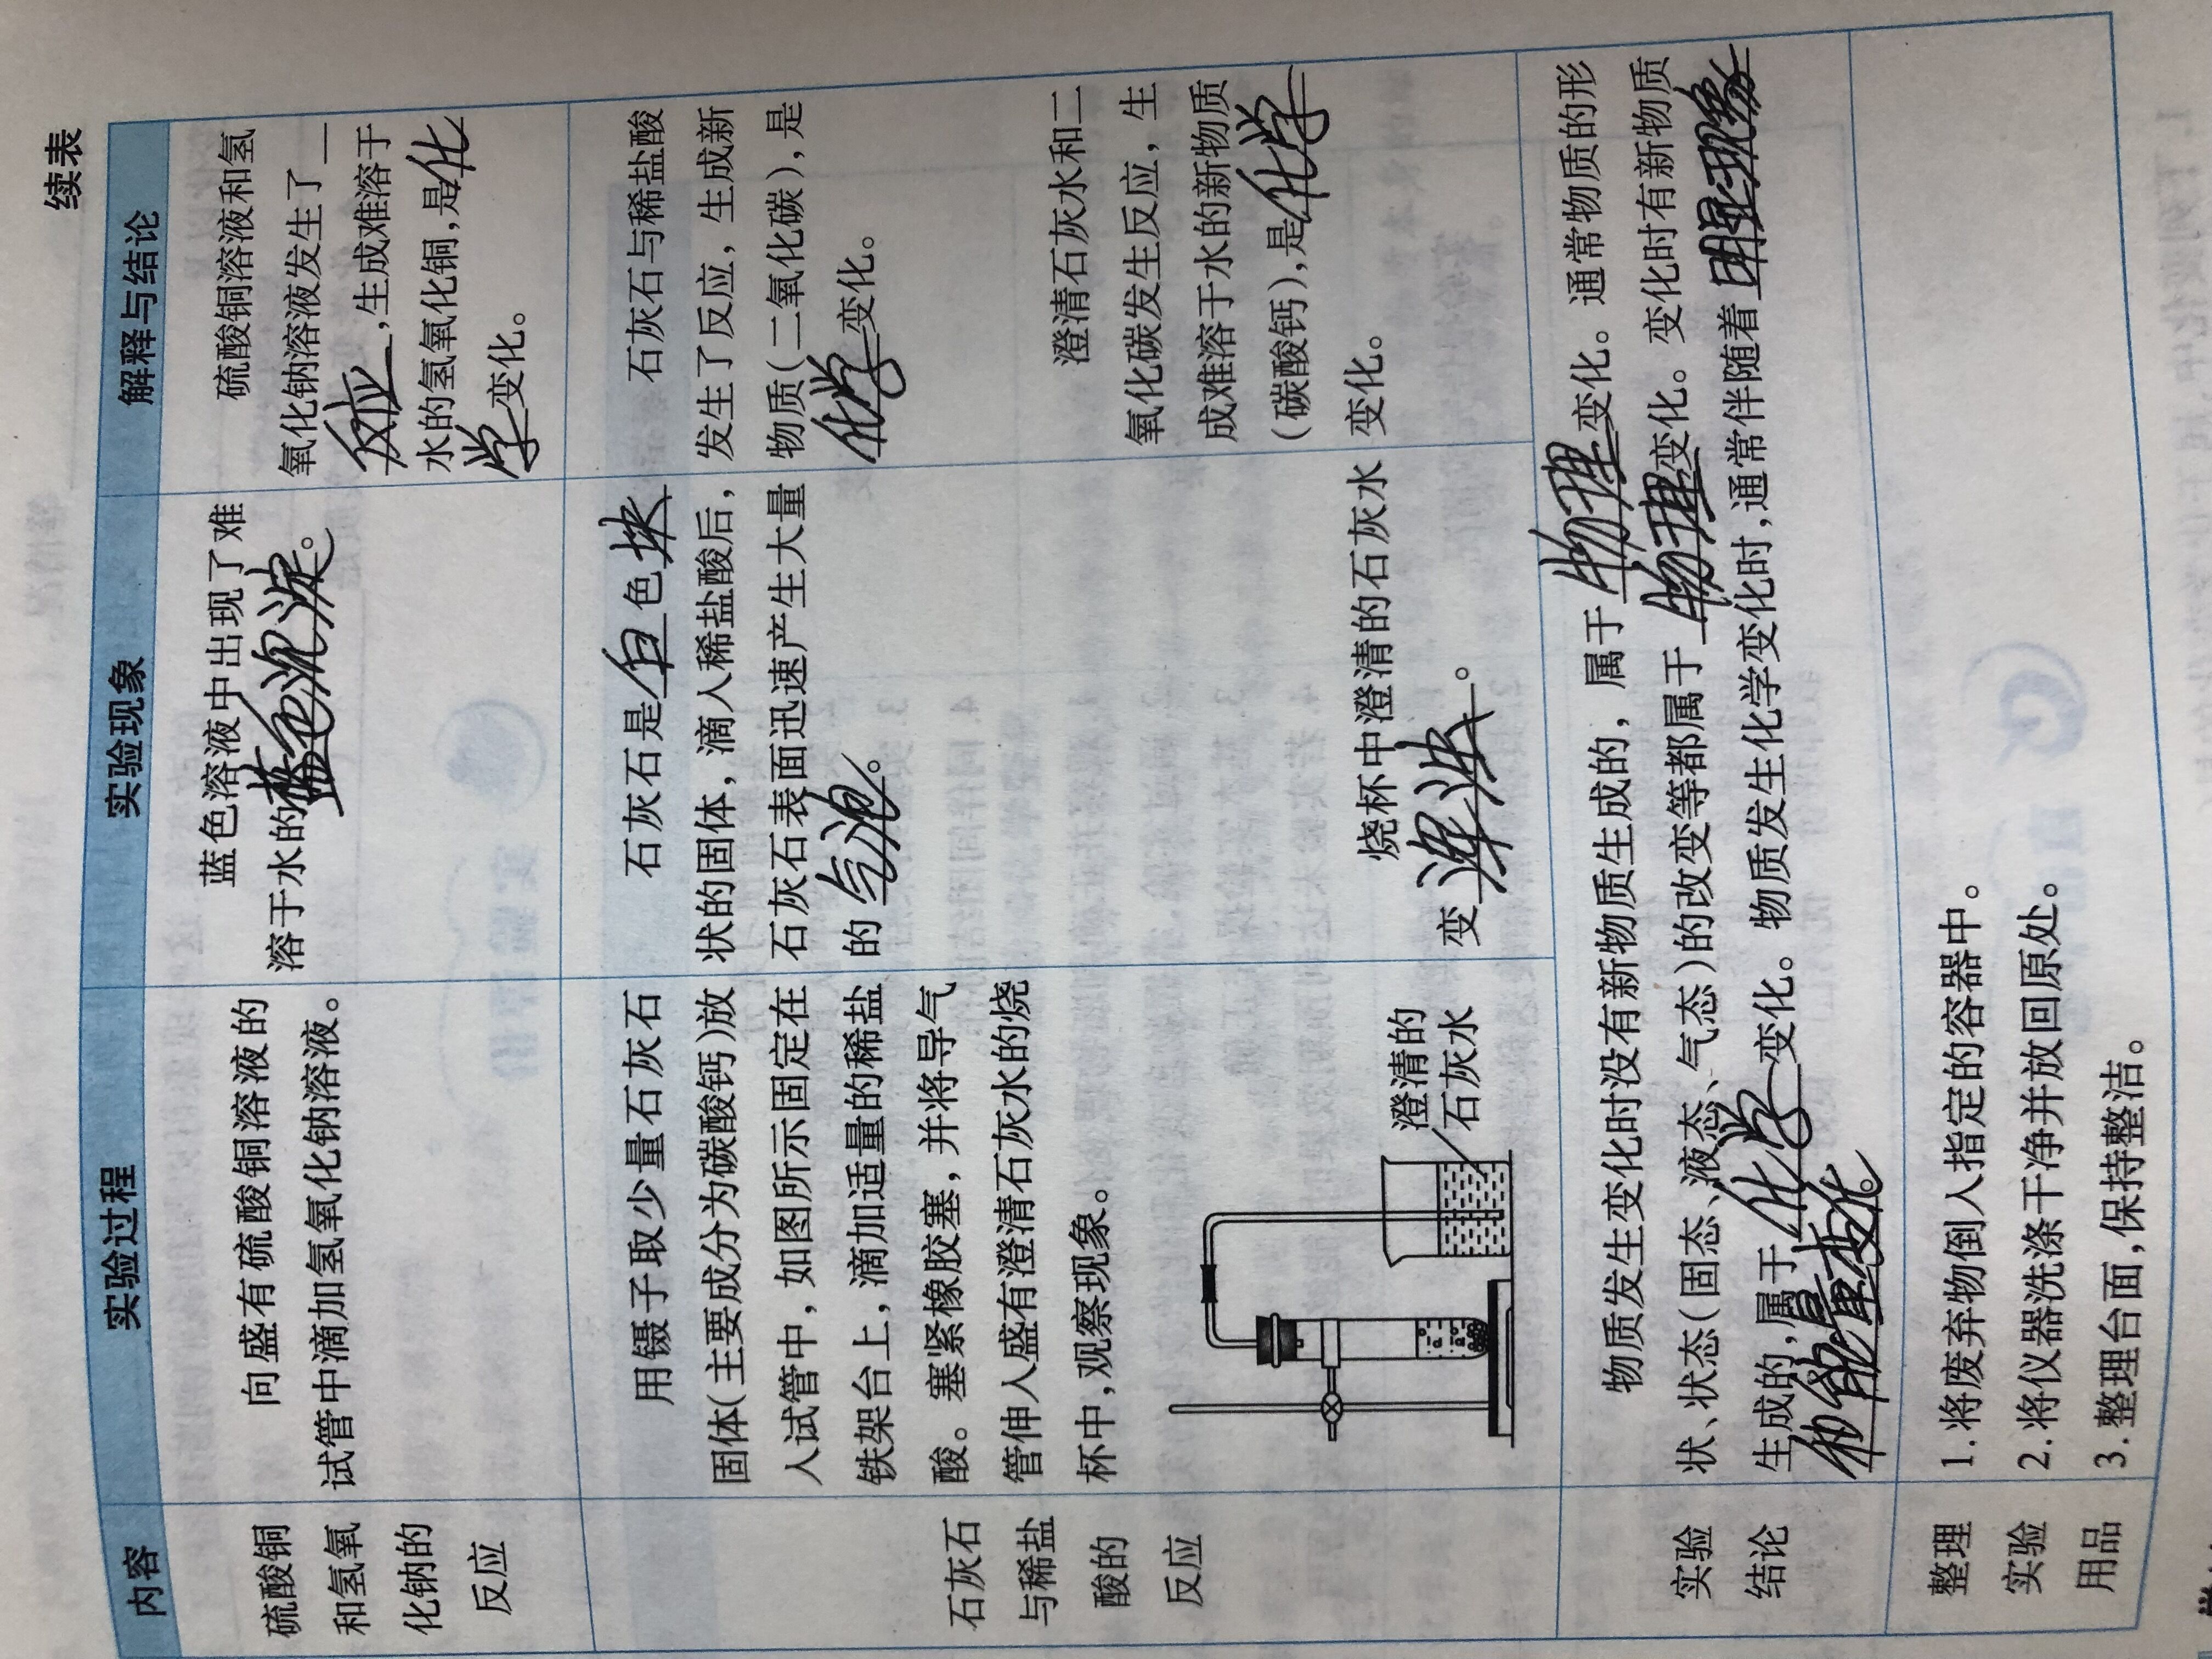 续表
内容
实验过程
实验现象
解释与结论
硫酸铜
和氢氧
化钠的
反应
向盛有硫酸铜溶液的
试管中滴加氢氧化钠溶液。
蓝色溶液中出现了难
溶于水的蓝色沉淀。
硫酸铜溶液和氢
氧化钠溶液发生了
反应,生成难溶于
水的氢氧化铜,是化
学变化。
石灰石
与稀盐
酸的
反应
用镊子取少量石灰石
固体(主要成分为碳酸钙)放
入试管中,如图所示固定在
铁架台上,滴加适量的稀盐
酸。塞紧橡胶塞,并将导气
管伸入盛有澄清石灰水的烧
杯中,观察现象。
澄清的
石灰水
石灰石是白色块
状的固体,滴入稀盐酸后,
石灰石表面迅速产生大量
的气泡。
烧杯中澄清的石灰水
变浑浊。
石灰石与稀盐酸
发生了反应,生成新
物质(二氧化碳),是
化学变化。
澄清石灰水和二
氧化碳发生反应,生
成难溶于水的新物质
(碳酸钙),是化学
变化。
实验
结论
物质发生变化时没有新物质生成的,属于物理变化。通常物质的形
状、状态(固态、液态、气态)的改变等都属于物理变化。变化时有新物质
生成的,属于化学变化。物质发生化学变化时,通常伴随着明显现象
和能量变化。
整理
实验
用品
1.将废弃物倒入指定的容器中。
2.将仪器洗涤干净并放回原处。
3.整理台面,保持整洁。